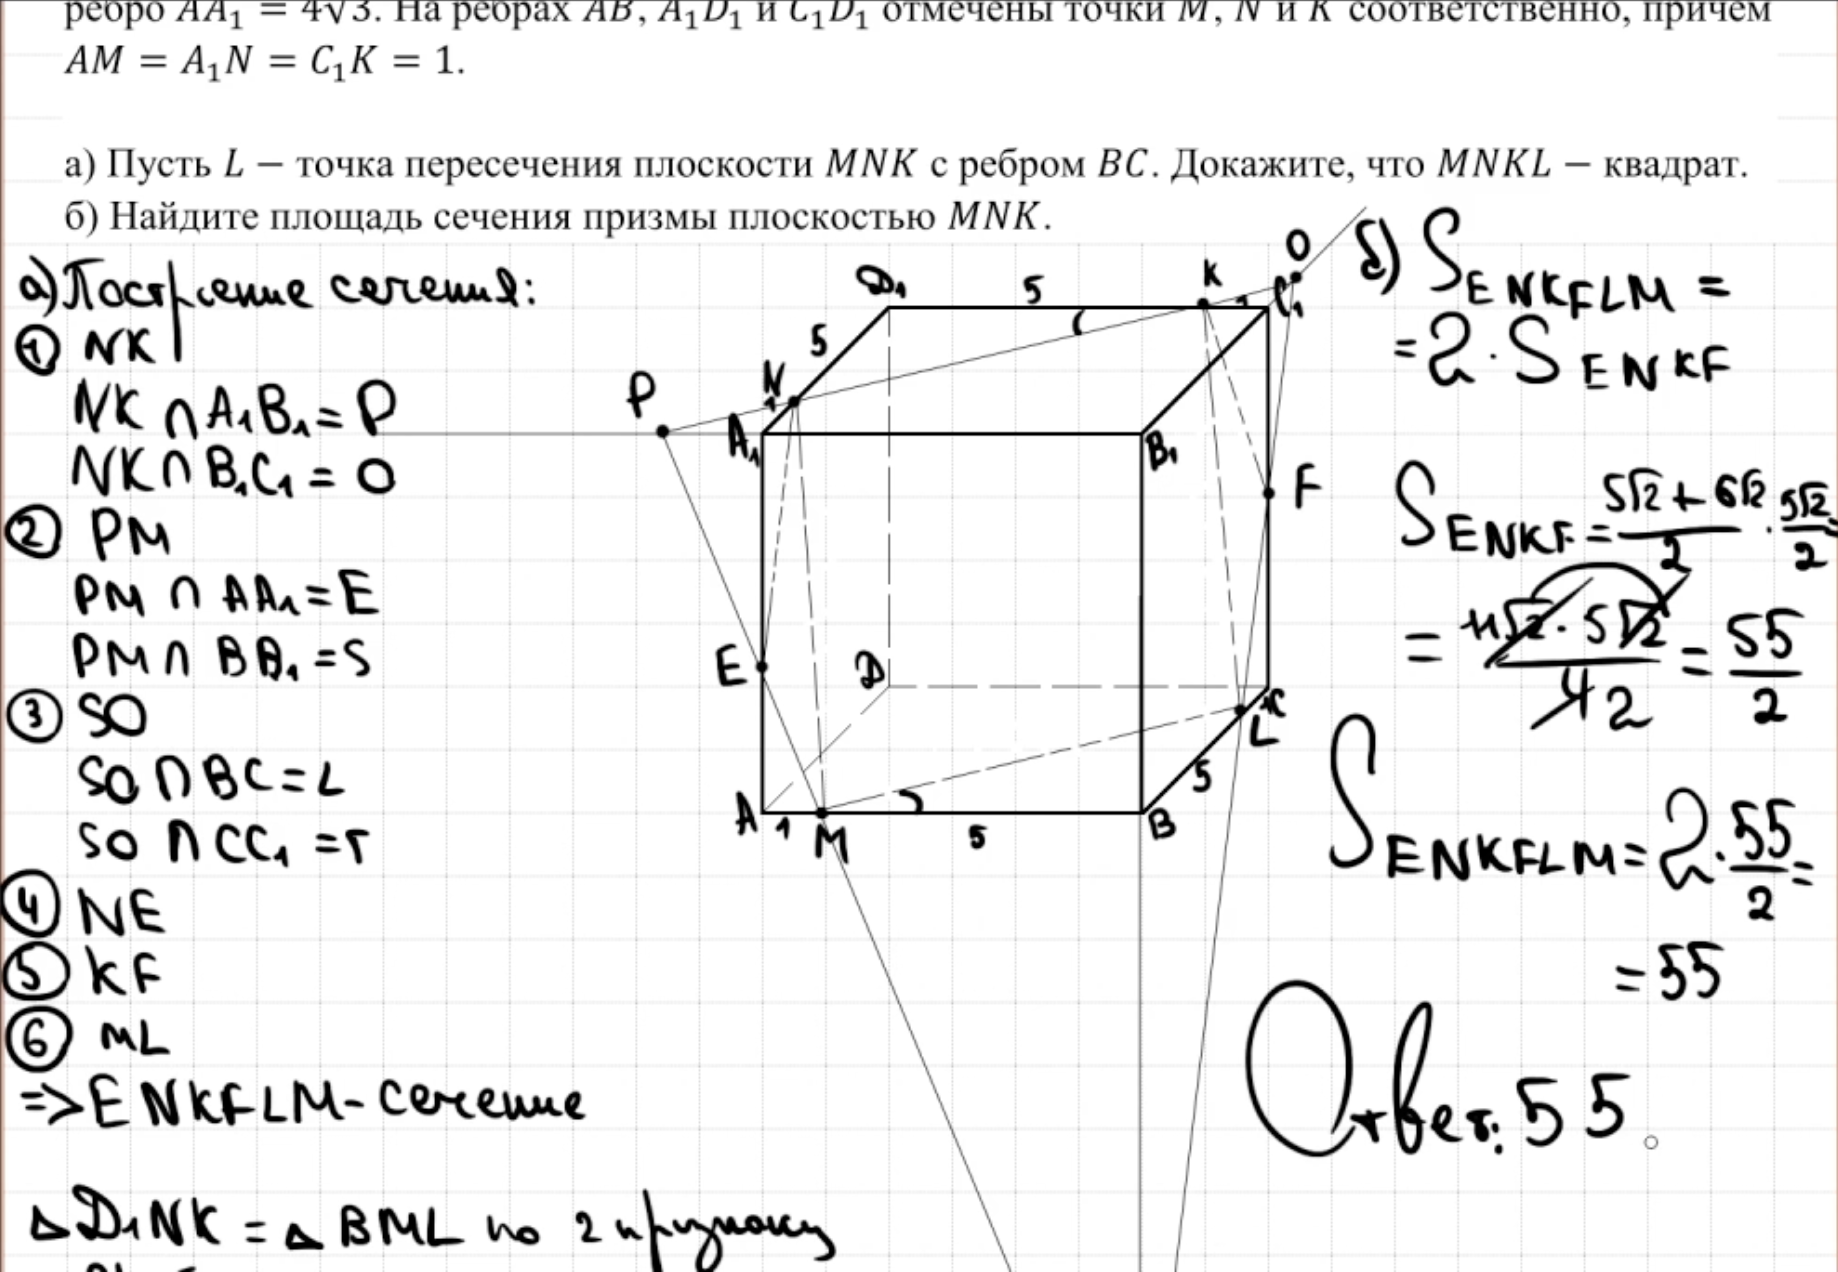 ребро AA₁ = 4√3. На ребрах AB, A₁D₁ и C₁D₁ отмечены точки M, N и K соответственно, причем
AM = A₁N = C₁K = 1.
а) Пусть L − точка пересечения плоскости MNK с ребром BC. Докажите, что MNKL − квадрат.
б) Найдите площадь сечения призмы плоскостью MNK.
а) Построение сечения:
① NK
NK ∩ A₁B₁ = P
NK ∩ B₁C₁ = O
② PM
PM ∩ AA₁ = E
PM ∩ BB₁ = S
③ SO
SO ∩ BC = L
SO ∩ CC₁ = F
④ NE
⑤ KF
⑥ ML
=> ENKFLM - сечение
△D₁NK = △BML по 2 признаку
D₁
5
K
1
C₁
O
5
N
1
P
A₁
B₁
F
E
D
C
1
L
5
A
1
M
5
B
б) S ENKFLM =
= 2 · S ENKF
S ENKF = (5√2 + 6√2)/2 · 5√2/2 =
= 11√2 · 5√2 / 4 2 = 55/2
S ENKFLM = 2 · 55/2 =
= 55
Ответ: 55.